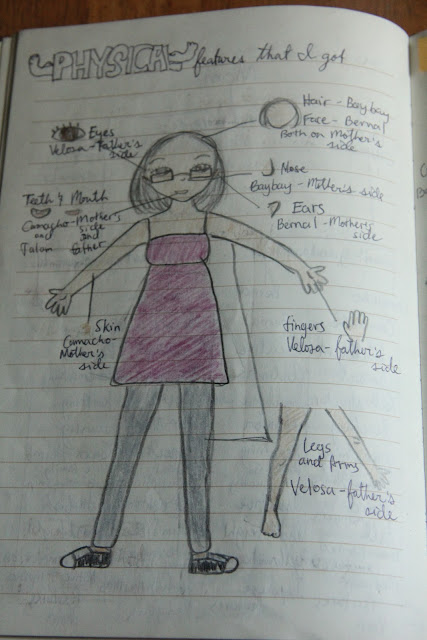 PHYSICAL features that I got
Hair - Baybay
Face - Bernal
Both on Mother's
side
Eyes
Velosa - Father's
side
Nose
Baybay - Mother's side
Teeth & Mouth
Camacho - Mother's
and side
and
Talan father
Ears
Bernal - Mother's
side
Skin
Camacho -
Mother's
side
fingers
Velosa - father's
side
Legs
and Arms
Velosa - father's
side